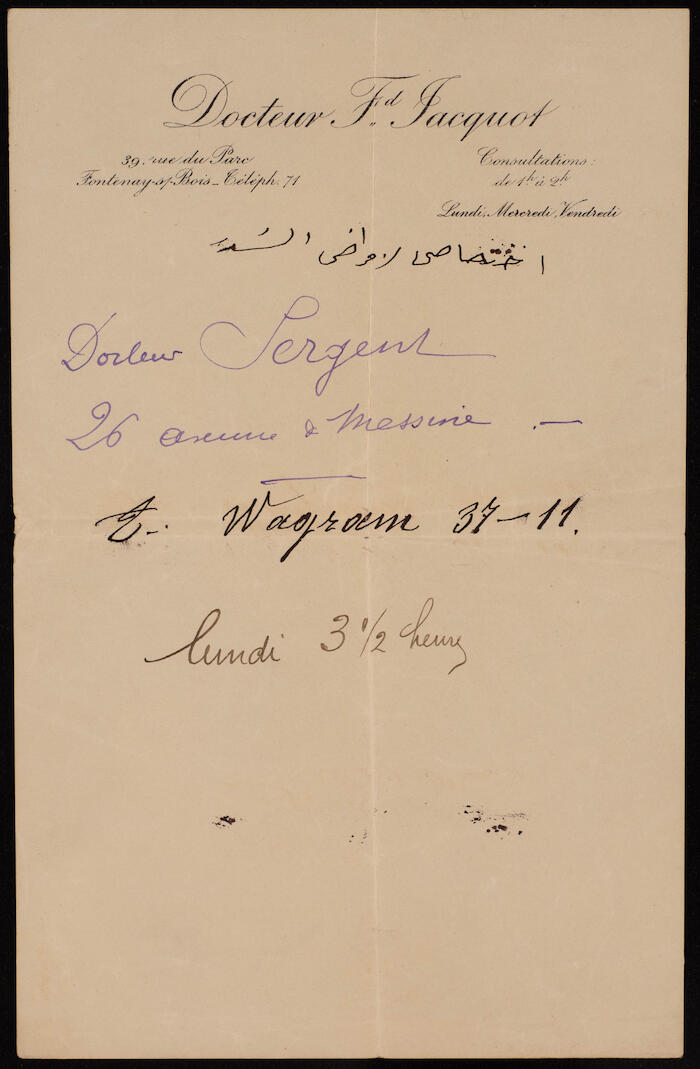 Docteur F.d Jacquot
39, rue du Parc
Fontenay-s/-Bois - Téléph. 71
Consultations:
de 1h à 2h
Lundi, Mercredi, Vendredi
اختصاصي لامراض الصدر
Docteur Sergent
26 avenue de Messine .—
T. Wagram 37-11.
lundi 3 1/2 heures